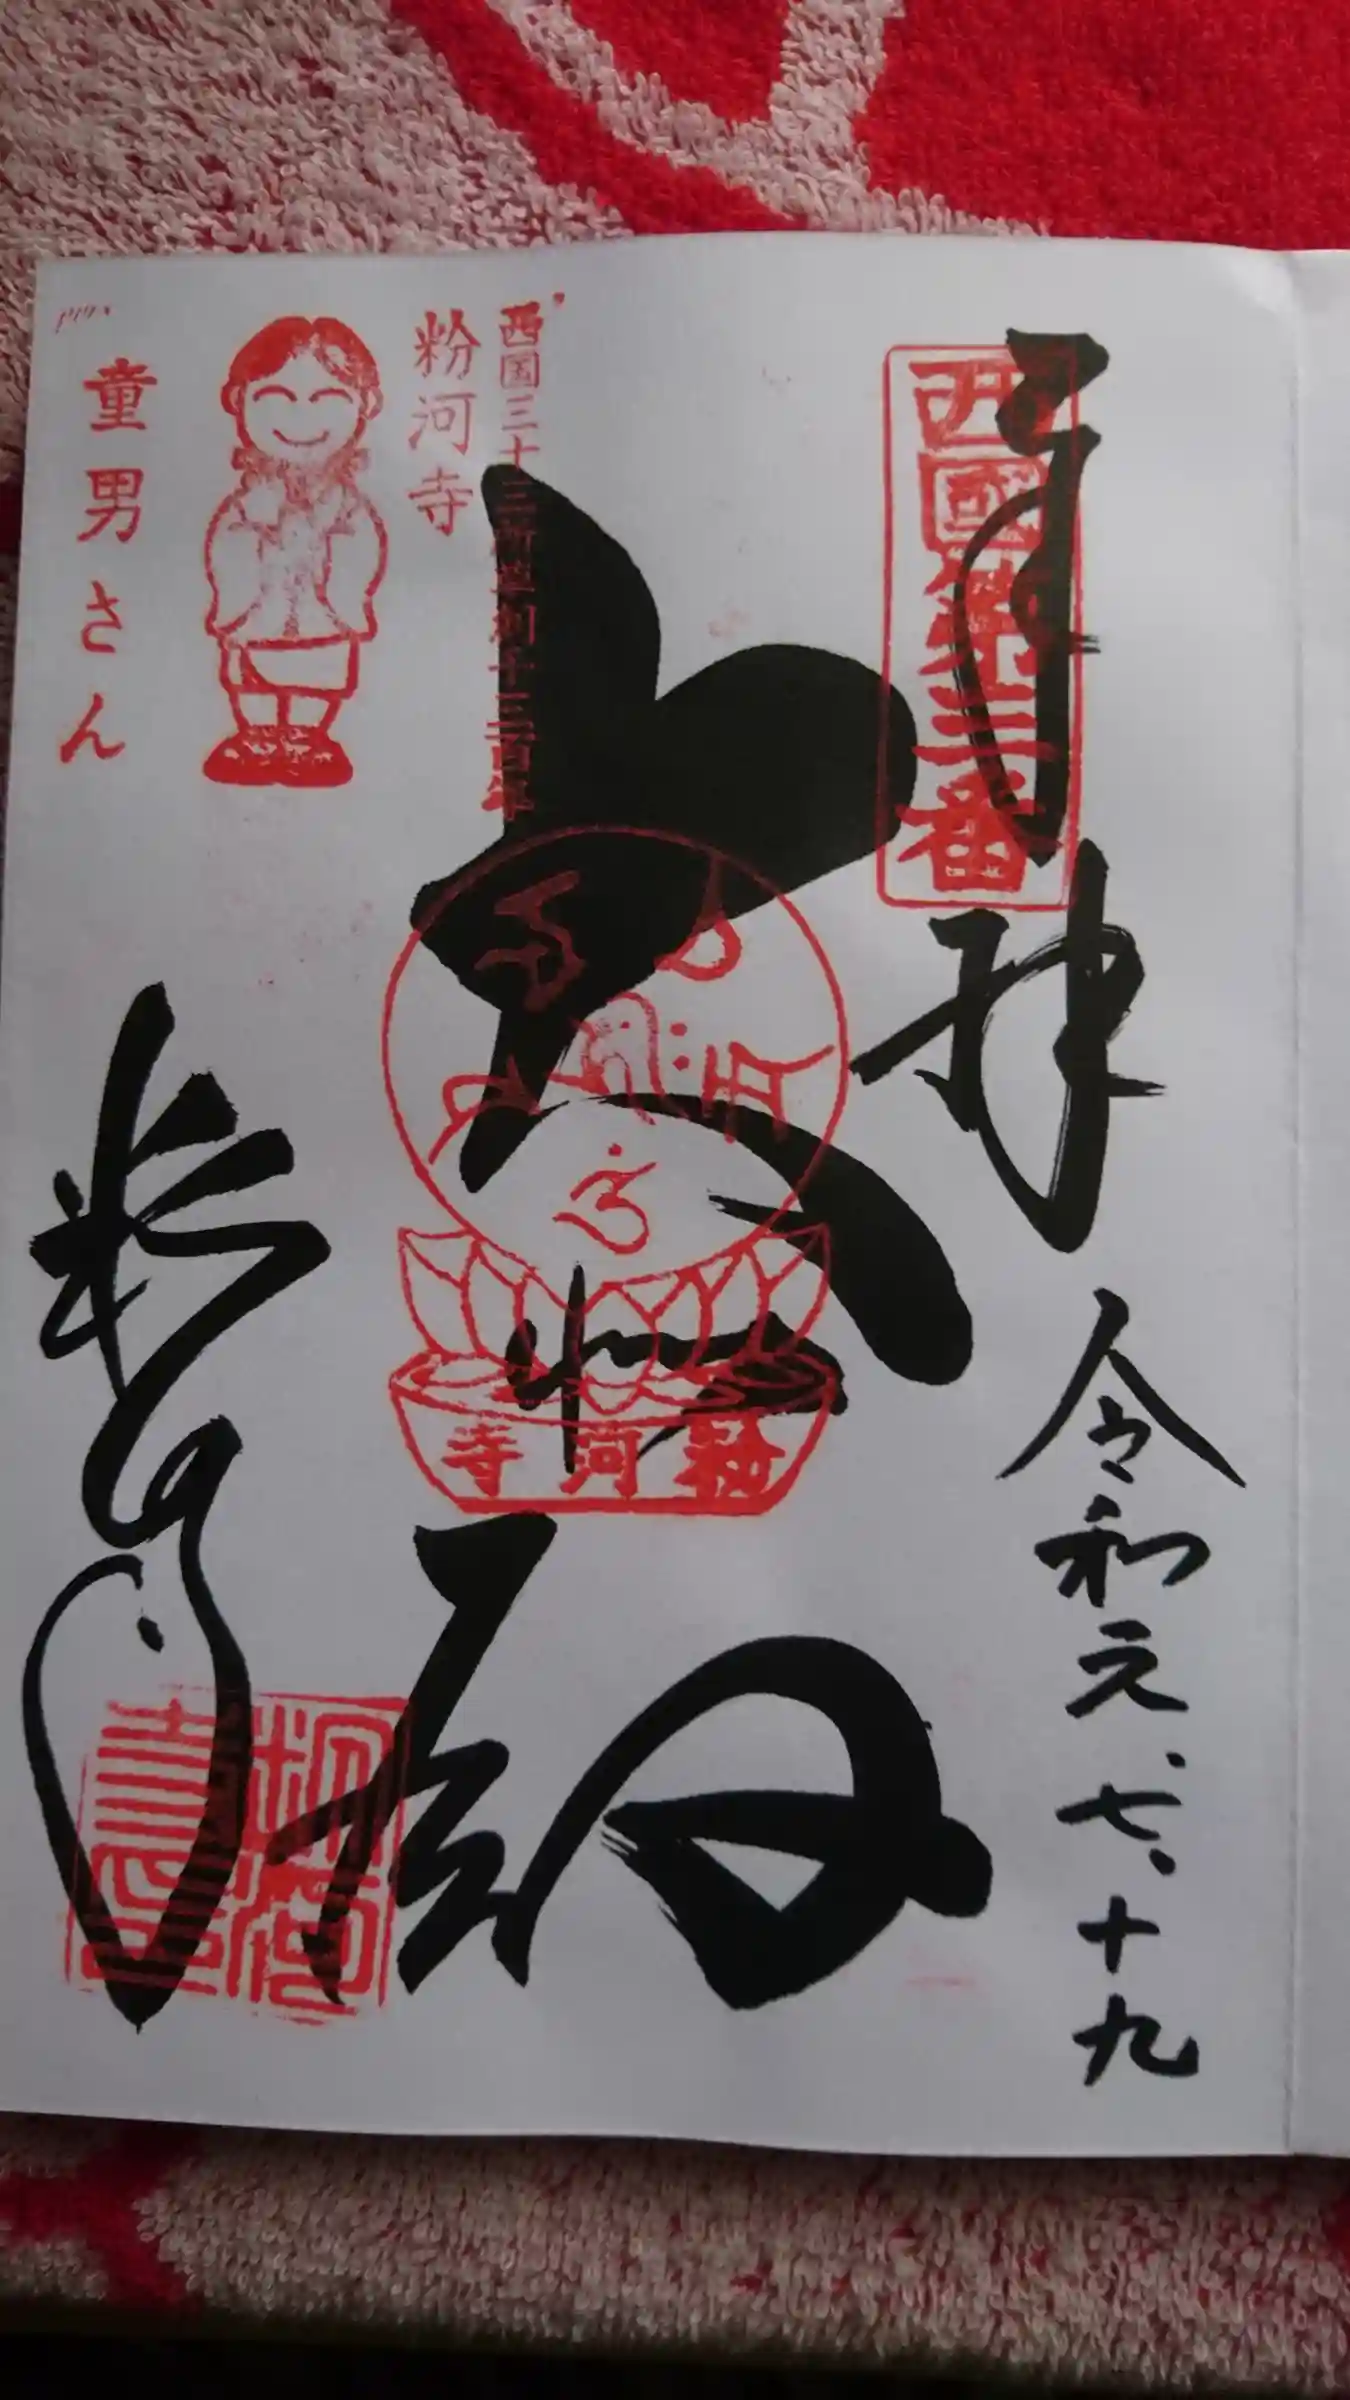 奉拝
西國第三番
令和元、七、十九
大悲
粉河寺
西国三十三所草創千三百年
粉河寺
童男さん
粉河寺